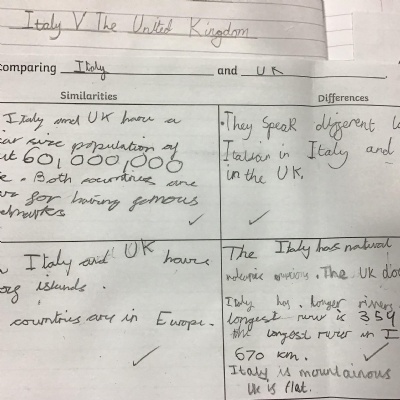 Italy V The United Kingdom
comparing Italy and UK
Similarities
Differences
Italy and UK have a
size population of
601,000,000
Both countries are
for having famous
They speak different
Italian in Italy and
in the UK.
Italy and UK have
islands.
countries are in Europe.
The Italy has natural
The UK
Italy has longer rivers
longest river is 354
the longest river in I
670 km.
Italy is mountainous
UK is flat.